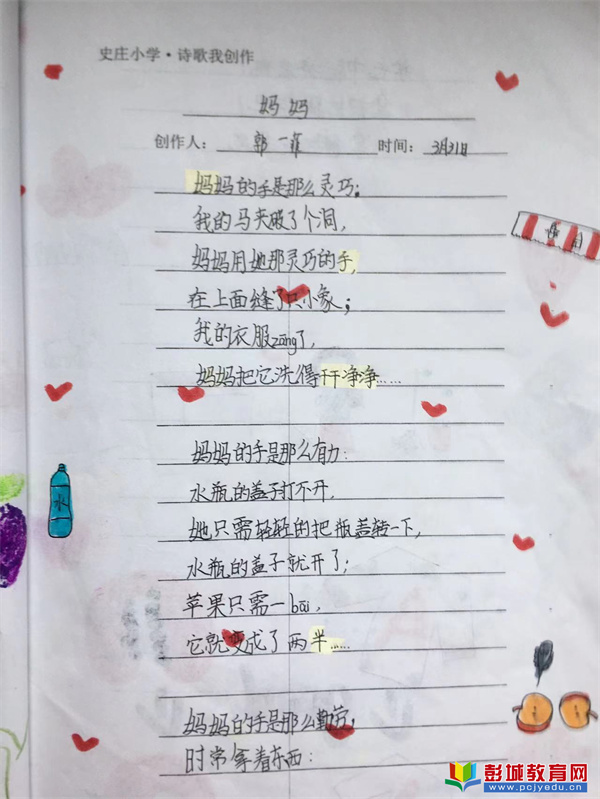 史庄小学·诗歌我创作
妈妈
创作人: 郭一菲 时间: 3月31日
妈妈的手是那么灵巧:
我的马夹破了个洞,
妈妈用她那灵巧的手,
在上面缝了只小象;
我的衣服zāng了,
妈妈把它洗得干干净净……
妈妈的手是那么有力:
水瓶的盖子打不开,
她只需轻轻的把瓶盖转一下,
水瓶的盖子就开了;
苹果只需一bāi,
它就变成了两半……
妈妈的手是那么勤劳,
时常拿着东西:
水
彭城教育网
www.pcjyedu.cn